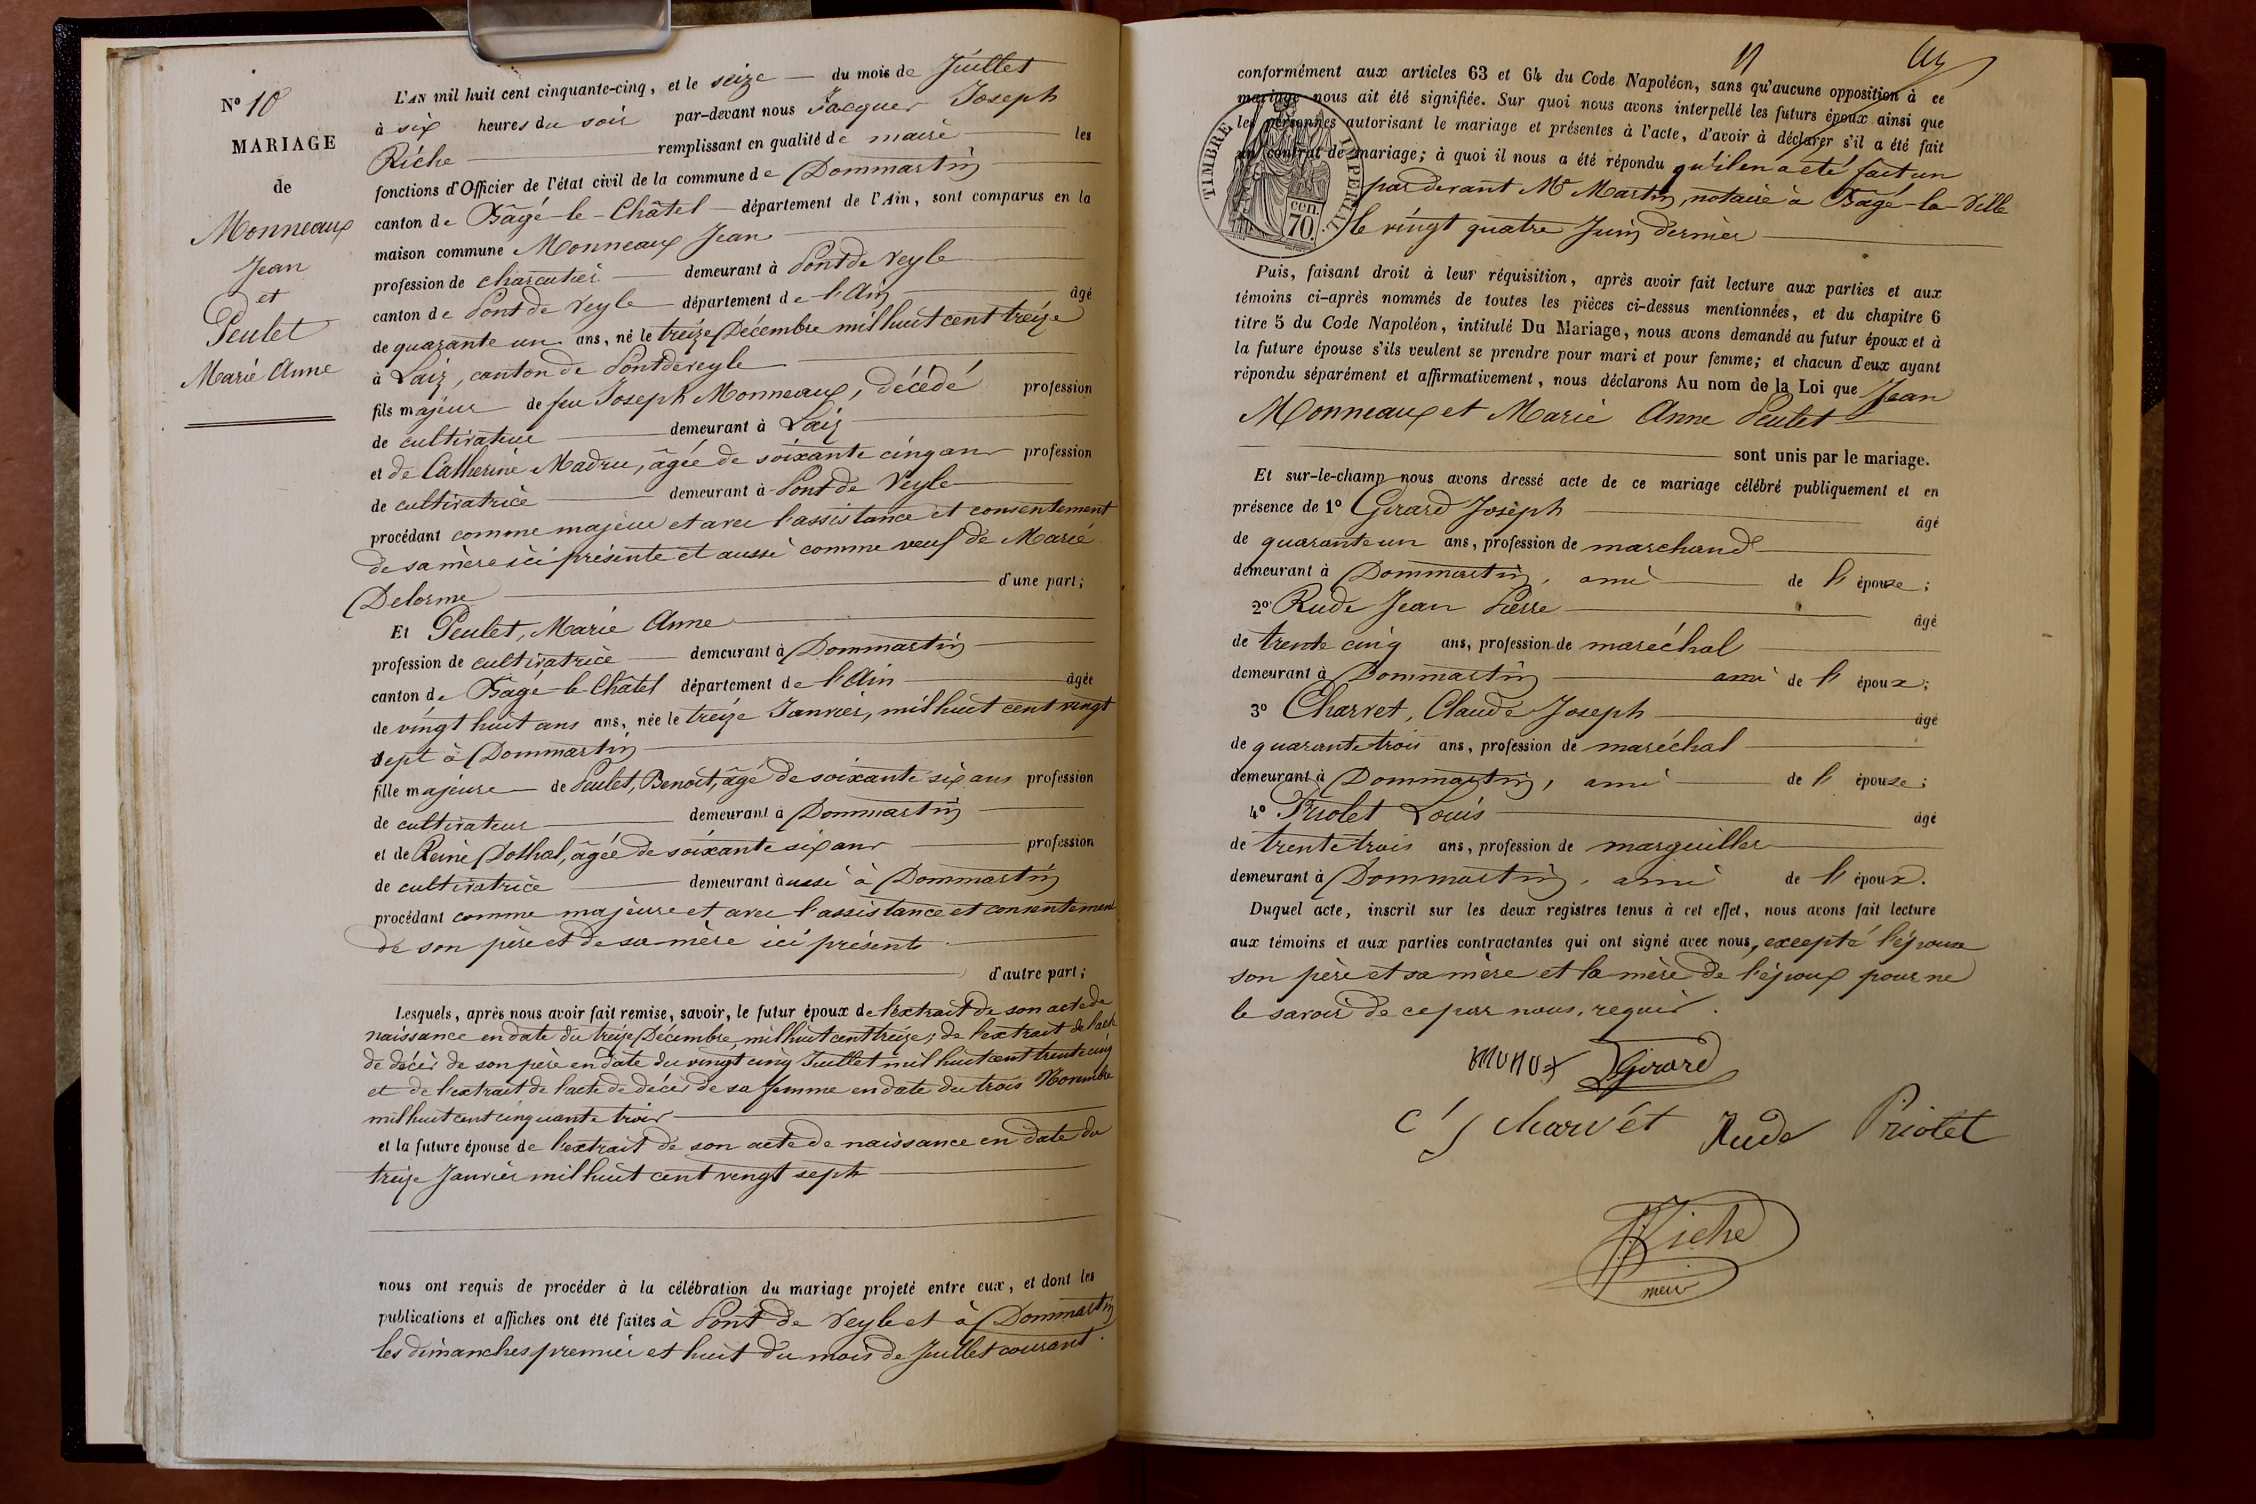 N° 10
MARIAGE
de
Monneaux
Jean
et
Peulet
Marie Anne
L'AN mil huit cent cinquante-cinq, et le seize du mois de Juillet
à six heures du soir par-devant nous Jacques Joseph
Riche remplissant en qualité de maire les
fonctions d'Officier de l'état civil de la commune de Dommartin
canton de Bâgé-le-Châtel département de l'Ain, sont comparus en la
maison commune Monneaux Jean
profession de charcutier demeurant à Pont de Veyle
canton de Pont de Veyle département de l'Ain âgé
de quarante un ans, né le treize Décembre mil huit cent treize
à Laiz, canton de Pontdeveyle
fils majeur de feu Joseph Monneaux, décédé profession
de cultivateur demeurant à Laiz
et de Catherine Madru, âgée de soixante cinq ans profession
de cultivatrice demeurant à Pont de Veyle
procédant comme majeur et avec l'assistance et consentement
de sa mère ici présente et aussi comme veuf de Marie
Delorme d'une part;
Et Peulet, Marie Anne
profession de cultivatrice demeurant à Dommartin
canton de Bâgé-le-Châtel département de l'Ain âgée
de vingt huit ans ans, née le treize Janvier, mil huit cent vingt
sept à Dommartin
fille majeure de Peulet, Benoit, âgé de soixante six ans profession
de cultivateur demeurant à Dommartin
et de Reine Dothal, âgée de soixante six ans profession
de cultivatrice demeurant aussi à Dommartin
procédant comme majeure et avec l'assistance et consentement
de son père et de sa mère ici présents
d'autre part;
Lesquels, après nous avoir fait remise, savoir, le futur époux de l'extrait de son acte de
naissance en date du treize Décembre mil huit cent treize; de l'extrait de l'acte
de décès de son père en date du vingt cinq Juillet mil huit cent trente cinq
et de l'extrait de l'acte de décès de sa femme en date du trois Novembre
mil huit cent cinquante trois
et la future épouse de l'extrait de son acte de naissance en date du
treize Janvier mil huit cent vingt sept
nous ont requis de procéder à la célébration du mariage projeté entre eux, et dont les
publications et affiches ont été faites à Pont de Veyle et à Dommartin
les dimanches premier et huit du mois de Juillet courant.
conformément aux articles 63 et 64 du Code Napoléon, sans qu'aucune opposition à ce
mariage nous ait été signifiée. Sur quoi nous avons interpellé les futurs époux ainsi que
les personnes autorisant le mariage et présentes à l'acte, d'avoir à déclarer s'il a été fait
un contrat de mariage; à quoi il nous a été répondu qu'il en a été fait un
par devant Me Martin, notaire à Bâgé-la-Ville
le vingt quatre Juin dernier
TIMBRE IMPERIAL
70 cen.
Puis, faisant droit à leur réquisition, après avoir fait lecture aux parties et aux
témoins ci-après nommés de toutes les pièces ci-dessus mentionnées, et du chapitre 6
titre 5 du Code Napoléon, intitulé Du Mariage, nous avons demandé au futur époux et à
la future épouse s'ils veulent se prendre pour mari et pour femme; et chacun d'eux ayant
répondu séparément et affirmativement, nous déclarons Au nom de la Loi que Jean
Monneaux et Marie Anne Peulet
sont unis par le mariage.
Et sur-le-champ nous avons dressé acte de ce mariage célébré publiquement et en
présence de 1° Girard Joseph âgé
de quarante un ans, profession de marchand
demeurant à Dommartin, ami de l'épouse;
2° Rude Jean Pierre âgé
de trente cinq ans, profession de maréchal
demeurant à Dommartin ami de l'époux;
3° Charvet, Claude Joseph âgé
de quarante trois ans, profession de maréchal
demeurant à Dommartin, ami de l'épouse;
4° Priolet Louis âgé
de trente trois ans, profession de marguiller
demeurant à Dommartin, ami de l'époux.
Duquel acte, inscrit sur les deux registres tenus à cet effet, nous avons fait lecture
aux témoins et aux parties contractantes qui ont signé avec nous, excepté l'épouse
son père et sa mère et la mère de l'époux pour ne
le savoir de ce par nous, requis.
Girard
C J Charvét Rude Priolet
Riche